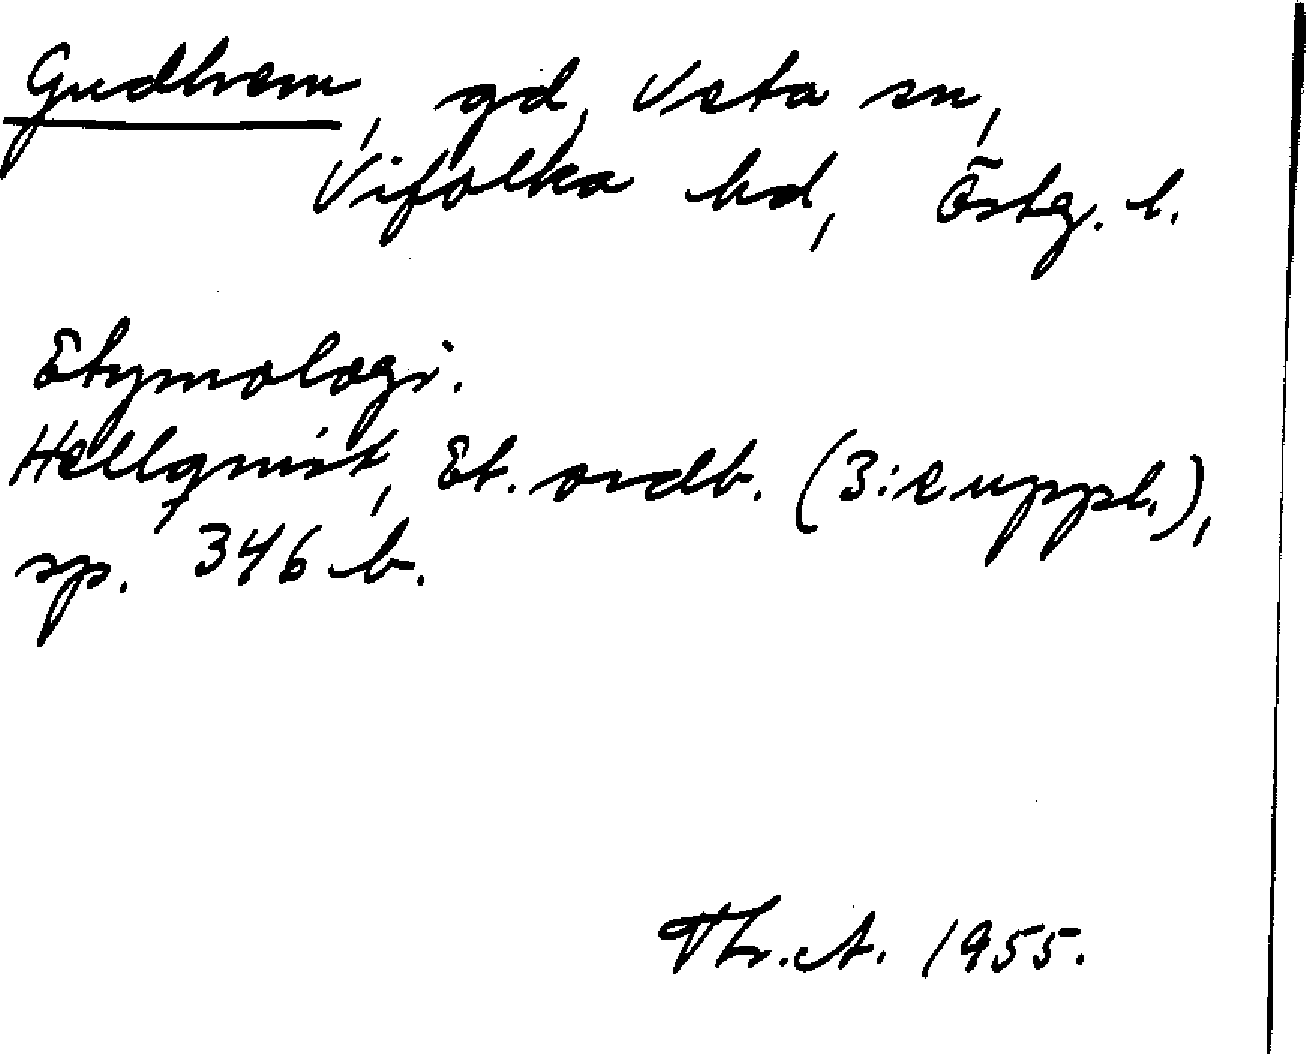 Gudhem, gd, Veta sn,
Vifolka hd, Östg. l.
Etymologi.
Hellquist, Et. ordb. (3:e uppl.),
sp. 346 b.
Th. A. 1955.